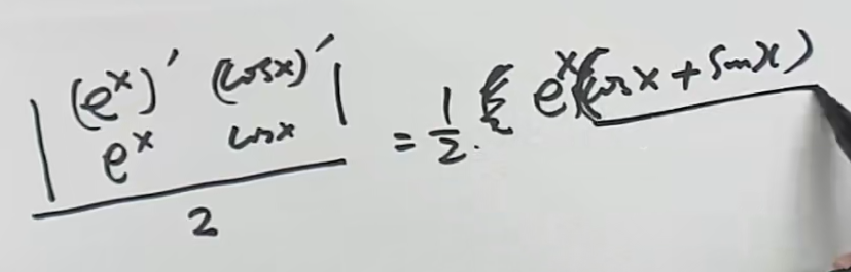 | (e^x)' (cosx)' |
| e^x cosx |
/ 2 = 1/2 · e^x (cosx + sinx)